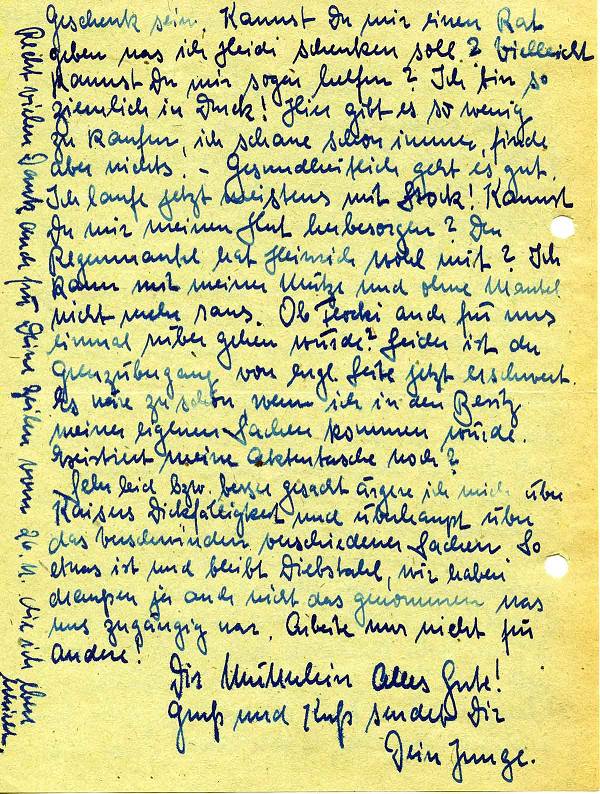 Geschenk sein. Kannst Du mir einen Rat
geben was ich Heidi schenken soll? Vielleicht
kannst Du mir sogar helfen? Ich bin so
ziemlich in Druck! Hier gibt es so wenig
zu kaufen, ich schaue schon immer, finde
aber nichts. – Gesundheitlich geht es gut.
Ich laufe jetzt meistens mit Stock! Kannst
Du mir meinen Hut herbesorgen? Den
Regenmantel hat Heinrich wohl mit? Ich
kann mit meiner Mütze und ohne Mantel
nicht mehr raus. Ob auch für uns
einmal rüber gehen würde? Leider ist der
Grenzübergang von engl. Seite jetzt erschwert.
Es wäre zu schön wenn ich in den Besitz
meiner eigenen Sachen kommen würde.
Existiert meine Aktentasche noch?
– Sehr leid bzw. besser gesagt ärgere ich mich über
Kaisers Dickfälligkeit und überhaupt über
das verschwinden verschiedener Sachen. So
etwas ist und bleibt Diebstahl, wir haben
draußen ja auch nicht das genommen was
uns zugängig war. Arbeite nur nicht für
Andere!
Dir Mütterlein Alles Gute!
Gruß und Kuß sendet Dir
Dein Junge.
Recht vielen Dank auch für Deine Zeilen vom 26.11. die ich eben
erhielt.